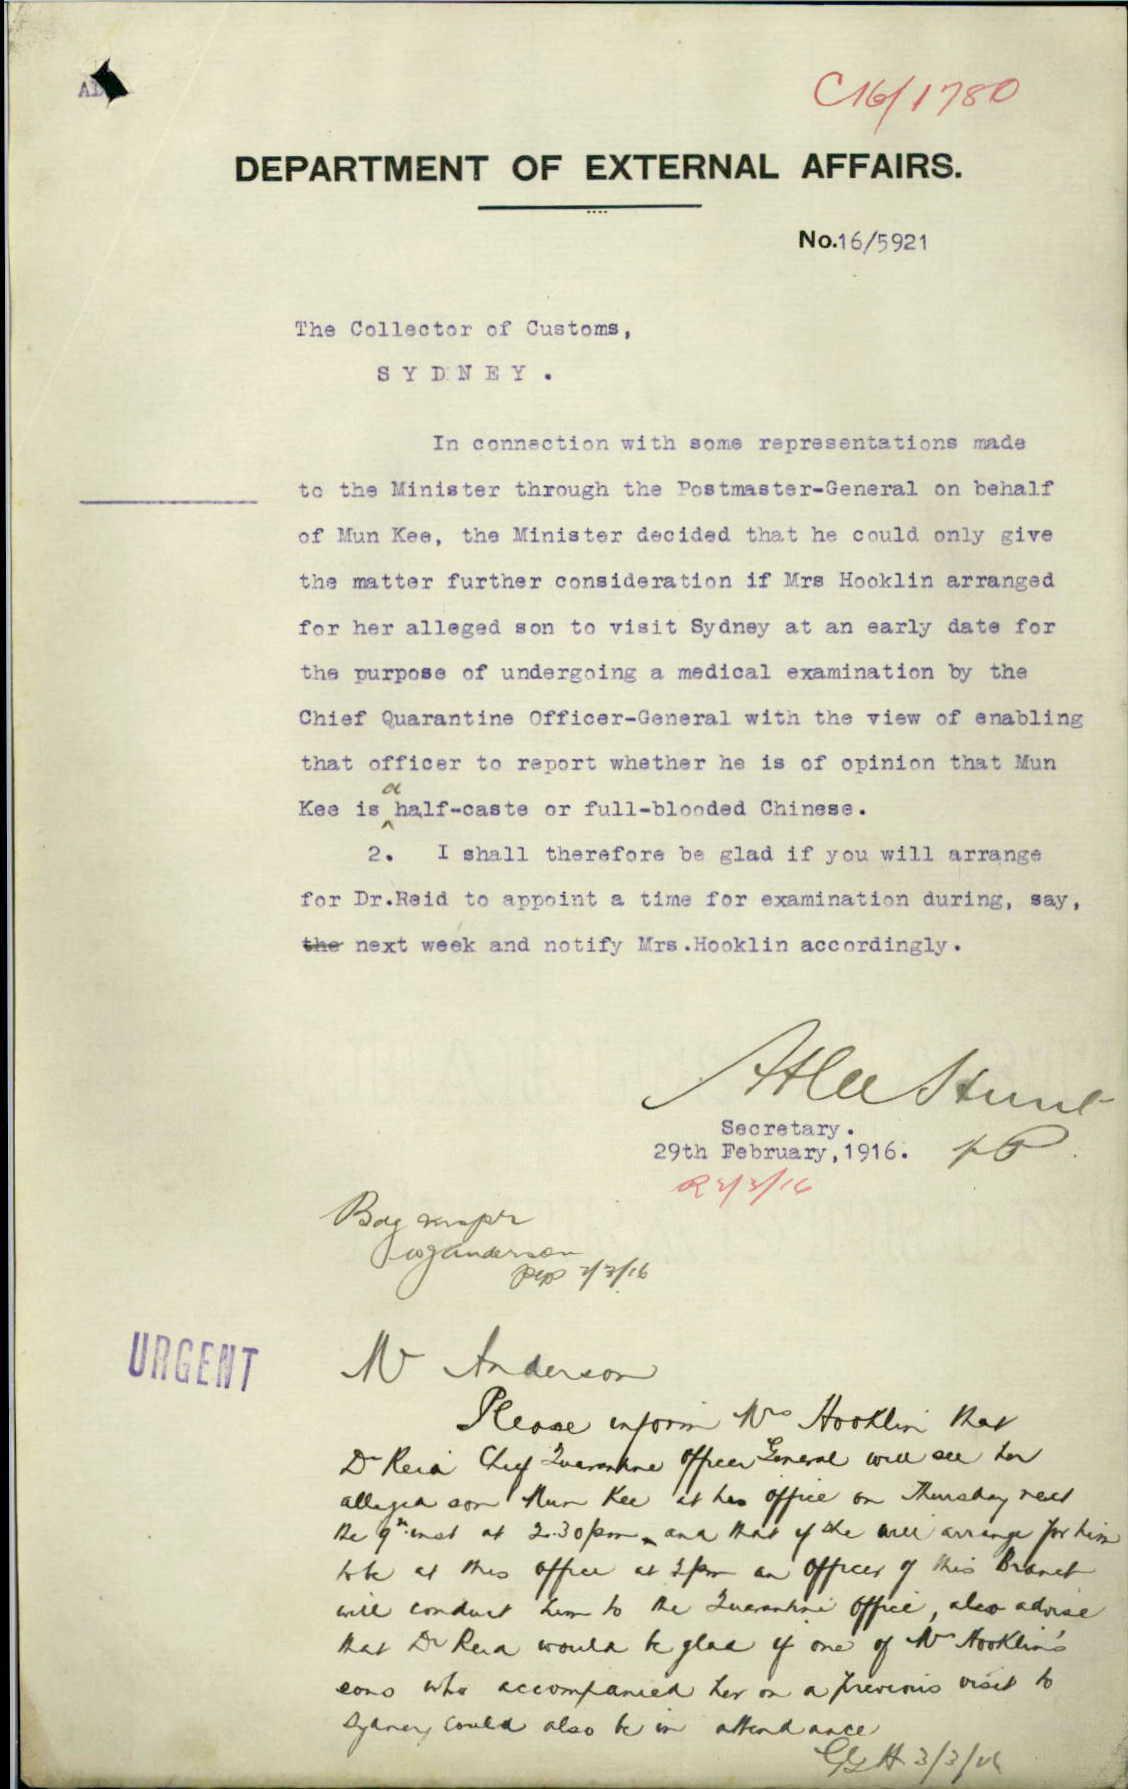 C16/1780
DEPARTMENT OF EXTERNAL AFFAIRS.
No.16/5921
The Collector of Customs,
SYDNEY.
In connection with some representations made
to the Minister through the Postmaster-General on behalf
of Mun Kee, the Minister decided that he could only give
the matter further consideration if Mrs Hooklin arranged
for her alleged son to visit Sydney at an early date for
the purpose of undergoing a medical examination by the
Chief Quarantine Officer-General with the view of enabling
that officer to report whether he is of opinion that Mun
Kee is a half-caste or full-blooded Chinese.
2. I shall therefore be glad if you will arrange
for Dr.Reid to appoint a time for examination during, say,
the next week and notify Mrs.Hooklin accordingly.
Atlee Hunt
Secretary.
29th February,1916.
Anderson
URGENT
Mr Anderson
Please inform Mrs Hooklin that
Dr Reid Chief Quarantine Officer General will see her
alleged son Mun Kee at his office on Thursday next
the 9th inst at 2.30pm and that if she will arrange for him
to be at this office at 2pm an Officer of this Branch
will conduct him to the Quarantine Office, also advise
that Dr Reid would be glad if one of Mrs Hooklin's
sons who accompanied her on a previous visit to
Sydney could also be in attendance
3/3/16